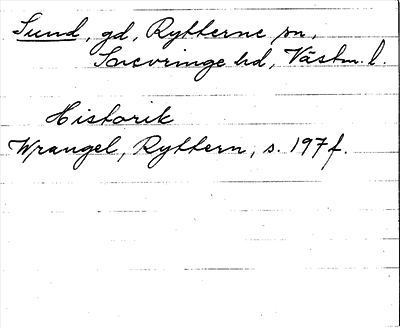 Sund, gd, Rytterne sn,
Snevringe hd, Västm. l.
Historik
Wrangel, Ryttern, s. 197 f.